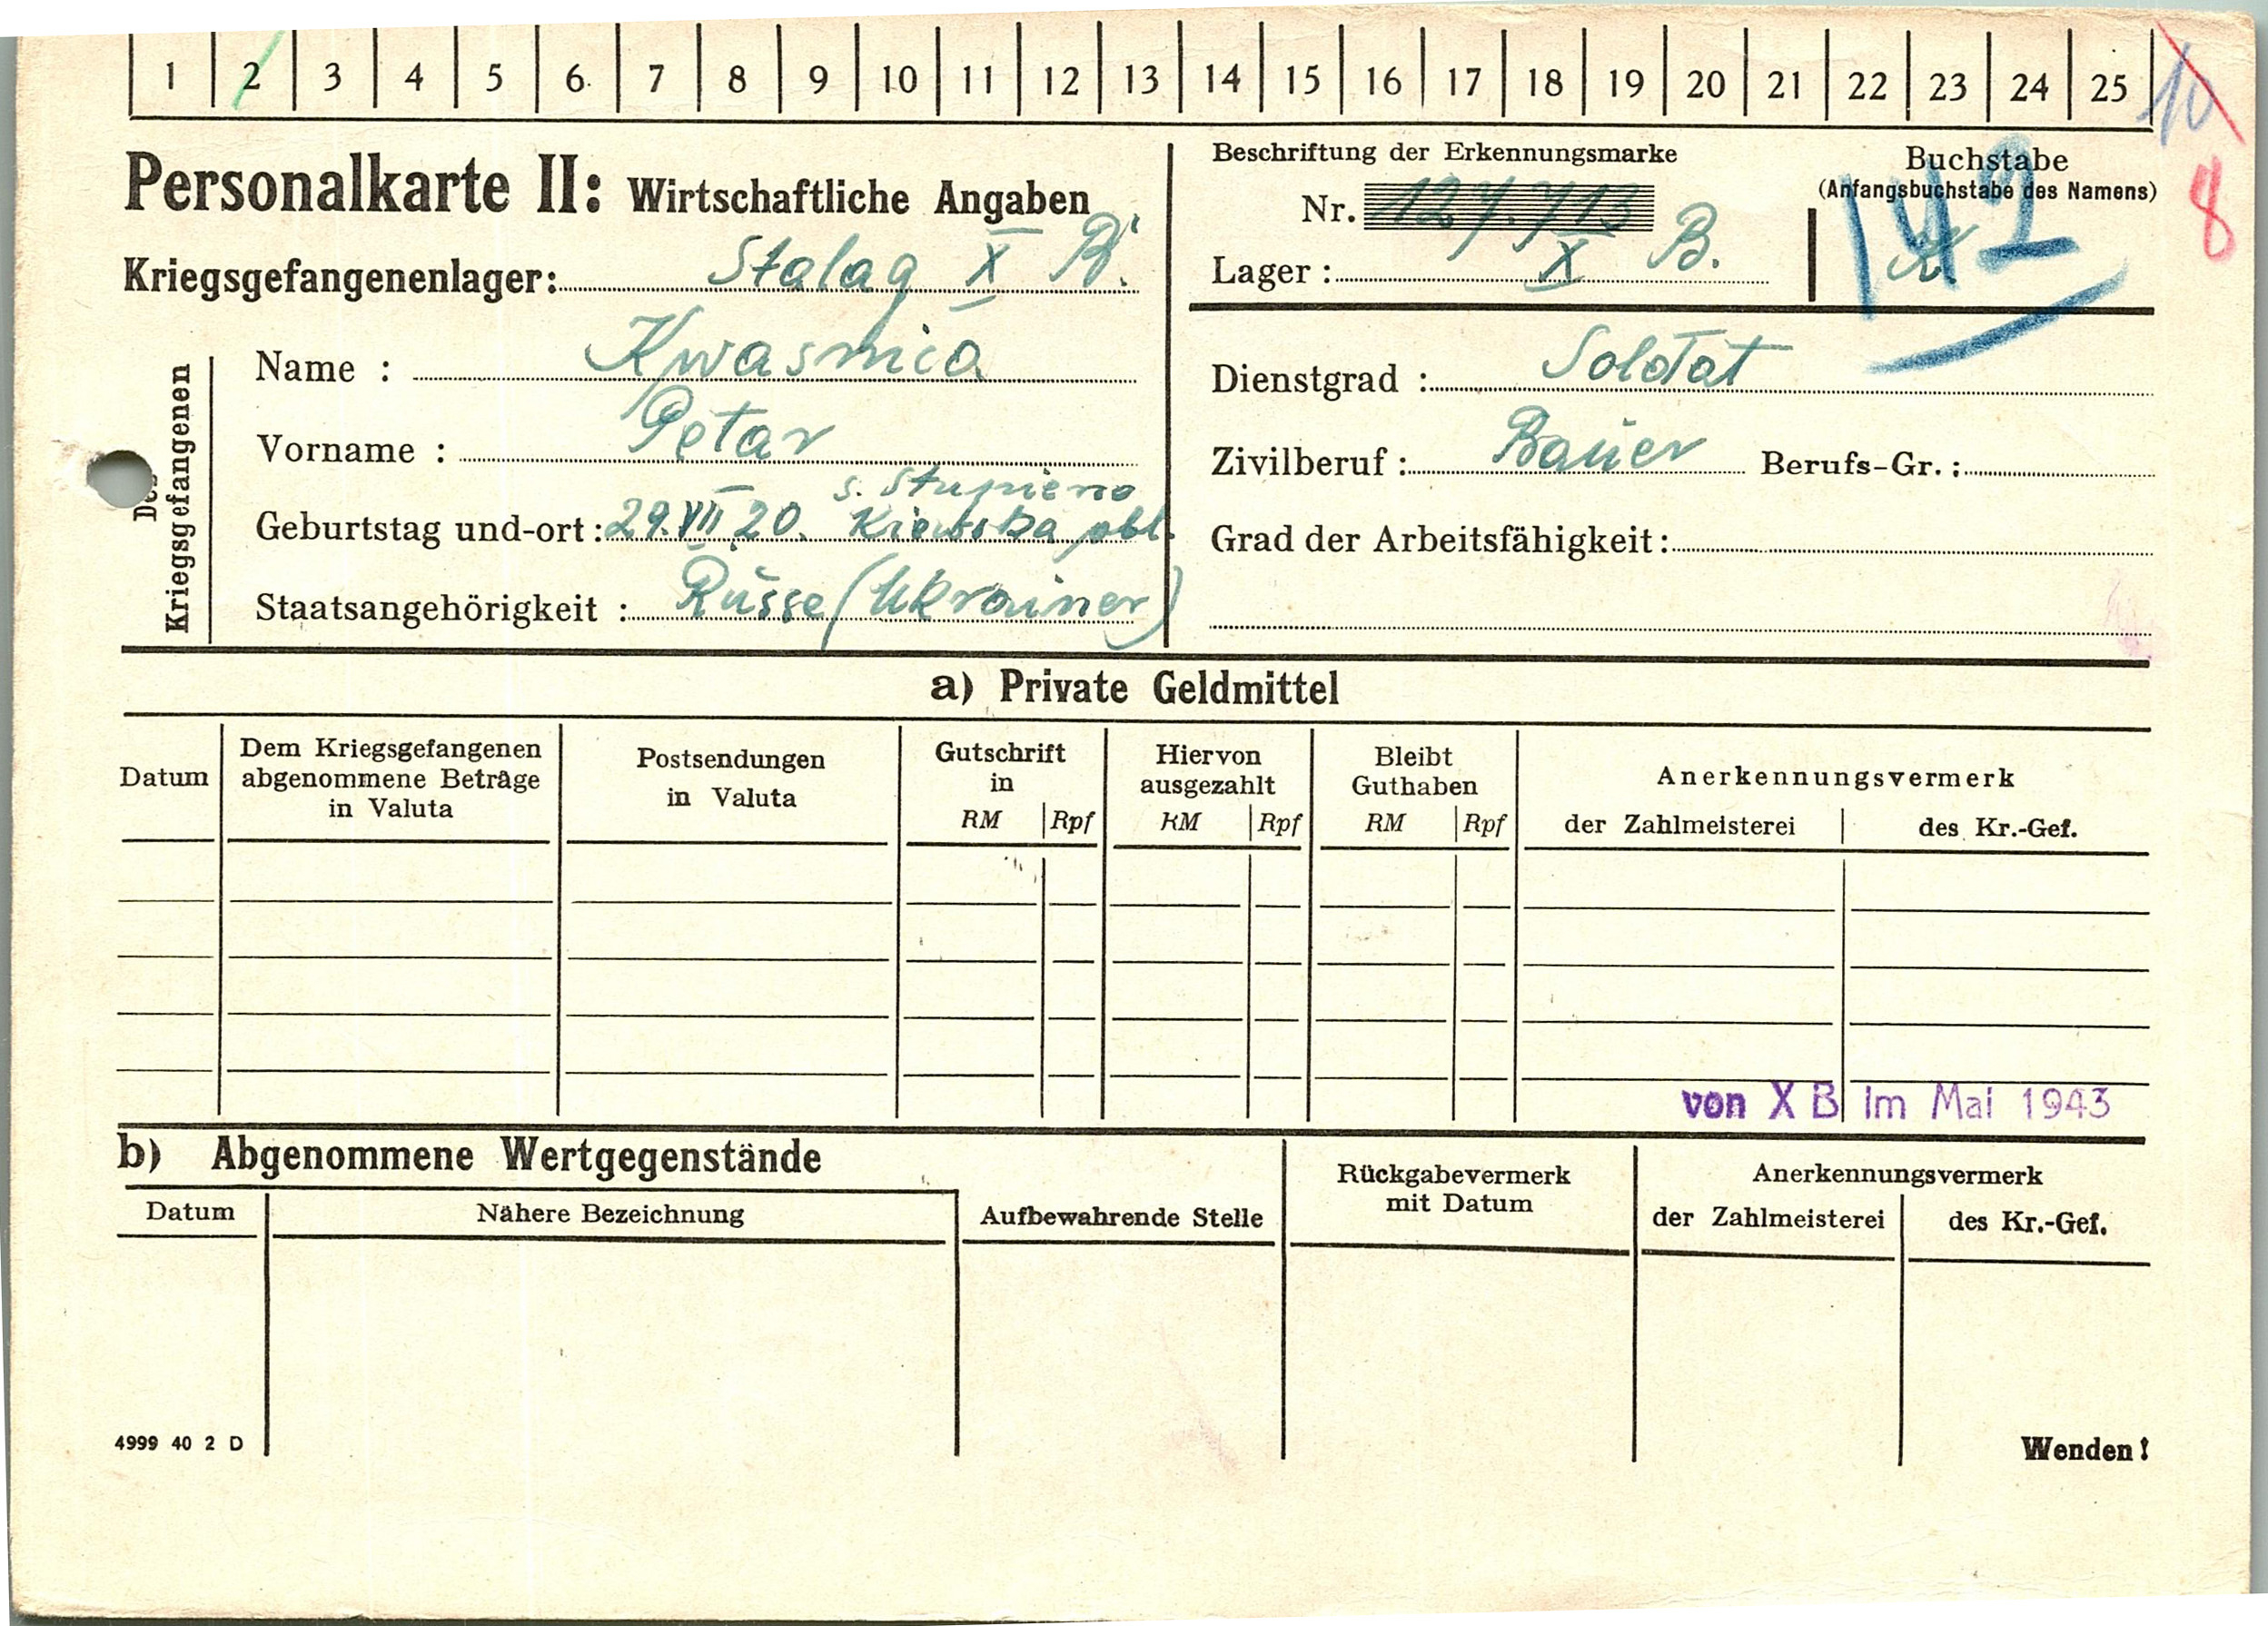 1 2 3 4 5 6 7 8 9 10 11 12 13 14 15 16 17 18 19 20 21 22 23 24 25 10
8
Personalkarte II: Wirtschaftliche Angaben
Kriegsgefangenenlager: Stalag X B.
Beschriftung der Erkennungsmarke
Nr. 127.713
Lager: X B.
Buchstabe
(Anfangsbuchstabe des Namens)
K
142
Des Kriegsgefangenen
Name: Kwasnica
Vorname: Petar
s. Stupieno
Geburtstag und-ort: 29.VII.20. Kiewska obl.
Staatsangehörigkeit: Russe (Ukrainer)
Dienstgrad: Soldat
Zivilberuf: Bauer Berufs-Gr.:
Grad der Arbeitsfähigkeit:
a) Private Geldmittel
Datum
Dem Kriegsgefangenen
abgenommene Beträge
in Valuta
Postsendungen
in Valuta
Gutschrift
in
RM Rpf
Hiervon
ausgezahlt
RM Rpf
Bleibt
Guthaben
RM Rpf
Anerkennungsvermerk
der Zahlmeisterei des Kr.-Gef.
von X B im Mai 1943
b) Abgenommene Wertgegenstände
Datum
Nähere Bezeichnung
Aufbewahrende Stelle
Rückgabevermerk
mit Datum
Anerkennungsvermerk
der Zahlmeisterei des Kr.-Gef.
4999 40 2 D
Wenden!